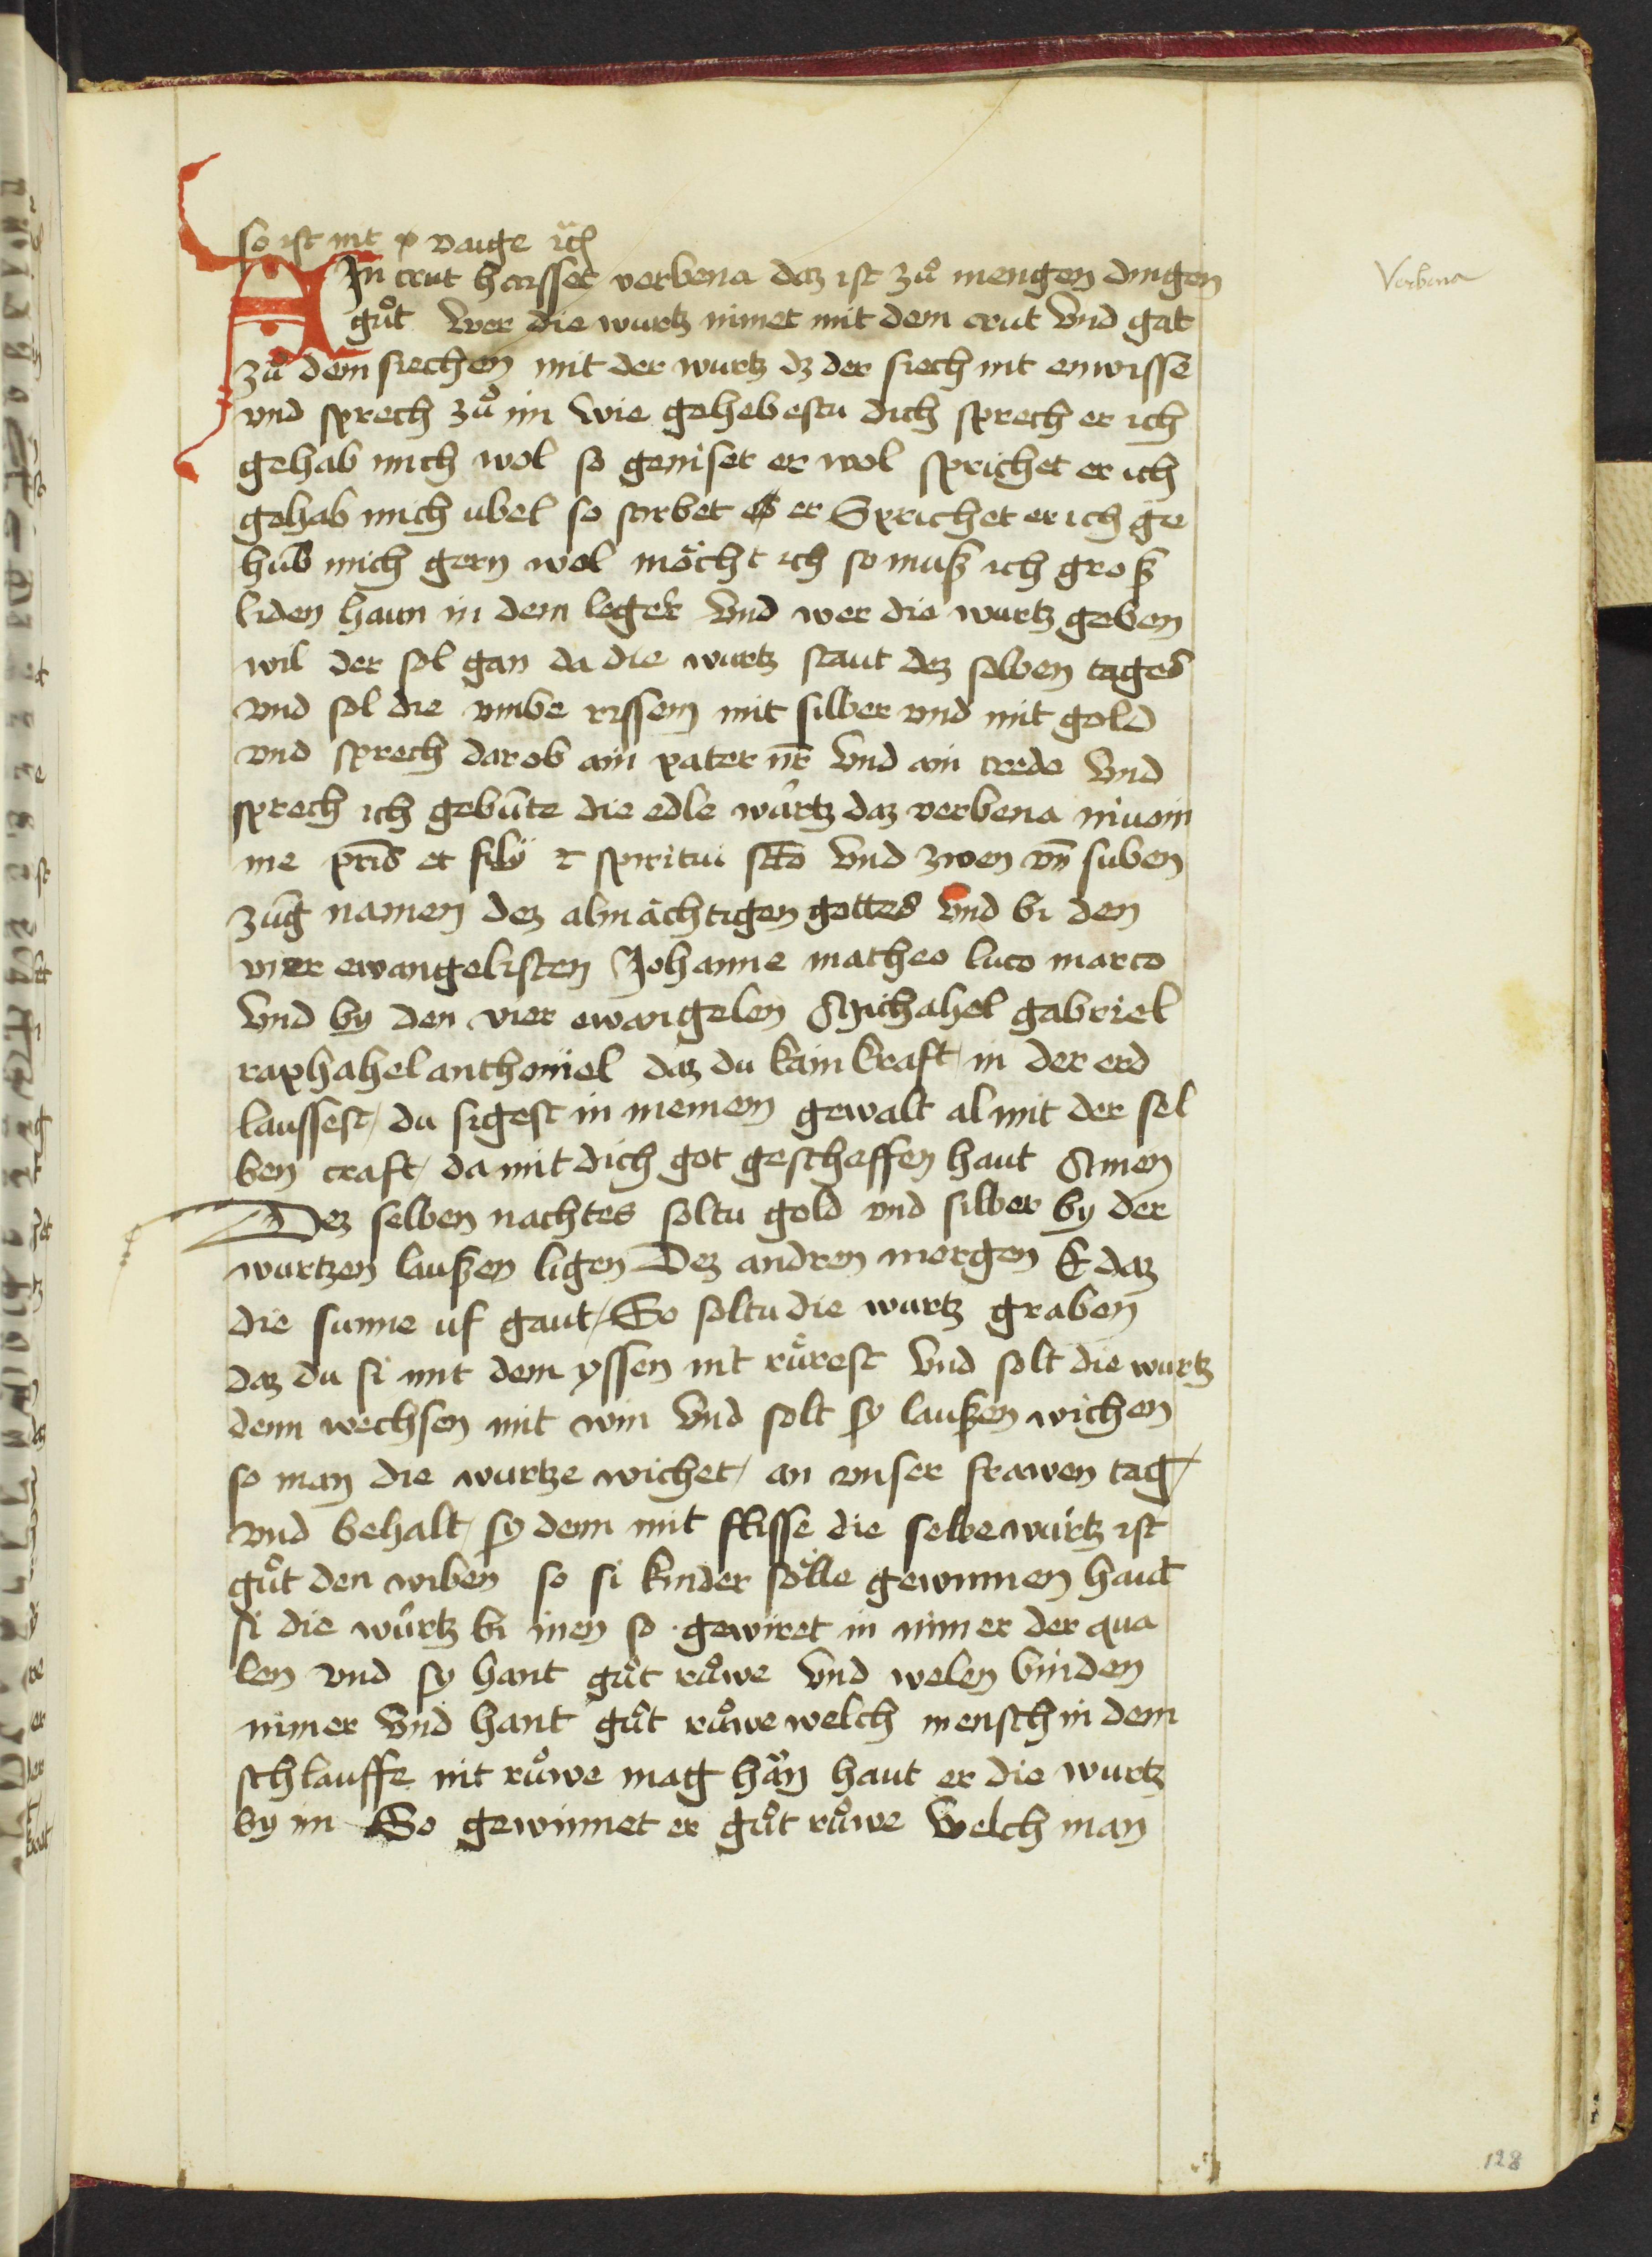 so ist nit
AIn crut haisset verbena daz ist zuͦ mengen dingen
Verbena
guͦt Wer die wurtz nimet mit dem crut Vnd gat
zuͦ dem siechen mit der wurtz dz der siech nit enwisse
vnd sprech zuͦ im Wie gehebestu dich sprech er ich
gehab mich wol so geniset er wol sprichet er ich
gehab mich ubel so stirbet er Sprichet er ich ge
hub mich gern wol möcht ich so muß ich groß
liden haun in dem leger Vnd wer die wurtz geben
wil der sol gan da die wurtz staut dez selben tages
vnd sol die vmbe rissem mit silber vnd mit gold
vnd sprech dar ob ain pater nr̄ Vnd ain credo Vnd
sprech ich gebúte die edle wurtz daz verbena
me pr̄is et filij et spiritui sc̄to Vnd zwen vn̄ suben
zug namen dez almächtigen gottes Vnd bi den
vier ewangelisten Johanne matheo luco marco
Vnd by den vier ewangelen Michahel gabriel
raphahel anthoniel daz du kain kraft in der erd
laussest du sigest in meinem gewalt al mit der sel
ben craft da mit dich got geschaffen haut Amen
Dez selben nachtes soltu gold vnd silber by der
wurtzen laußen ligen Dez andren morgen E daz
die sunne uf gaut So soltu die wurtz graben
daz du si mit dem yssen nit ruͤrest Vnd solt die wurtz
denn wechsen mit win Vnd solt sy laußen wichen
so man die wurtze wichet an vnser frawen tag
vnd behalt sy denn mit flisse die selbe wurtz ist
guͦt den wiben so si kinder sölle gewinnen haut
si die wurtz bi inen so gewiret in nimer der qua
len vnd sy hant guͦt ruͦwe Vnd welen binden
nimer Vnd hant guͦt ruͦwe welch mensch in dem
schlauffe nit ruͦwe mag hän haut er die wurtz
by im So gewinnet er guͦt ruͦwe Welch man
128